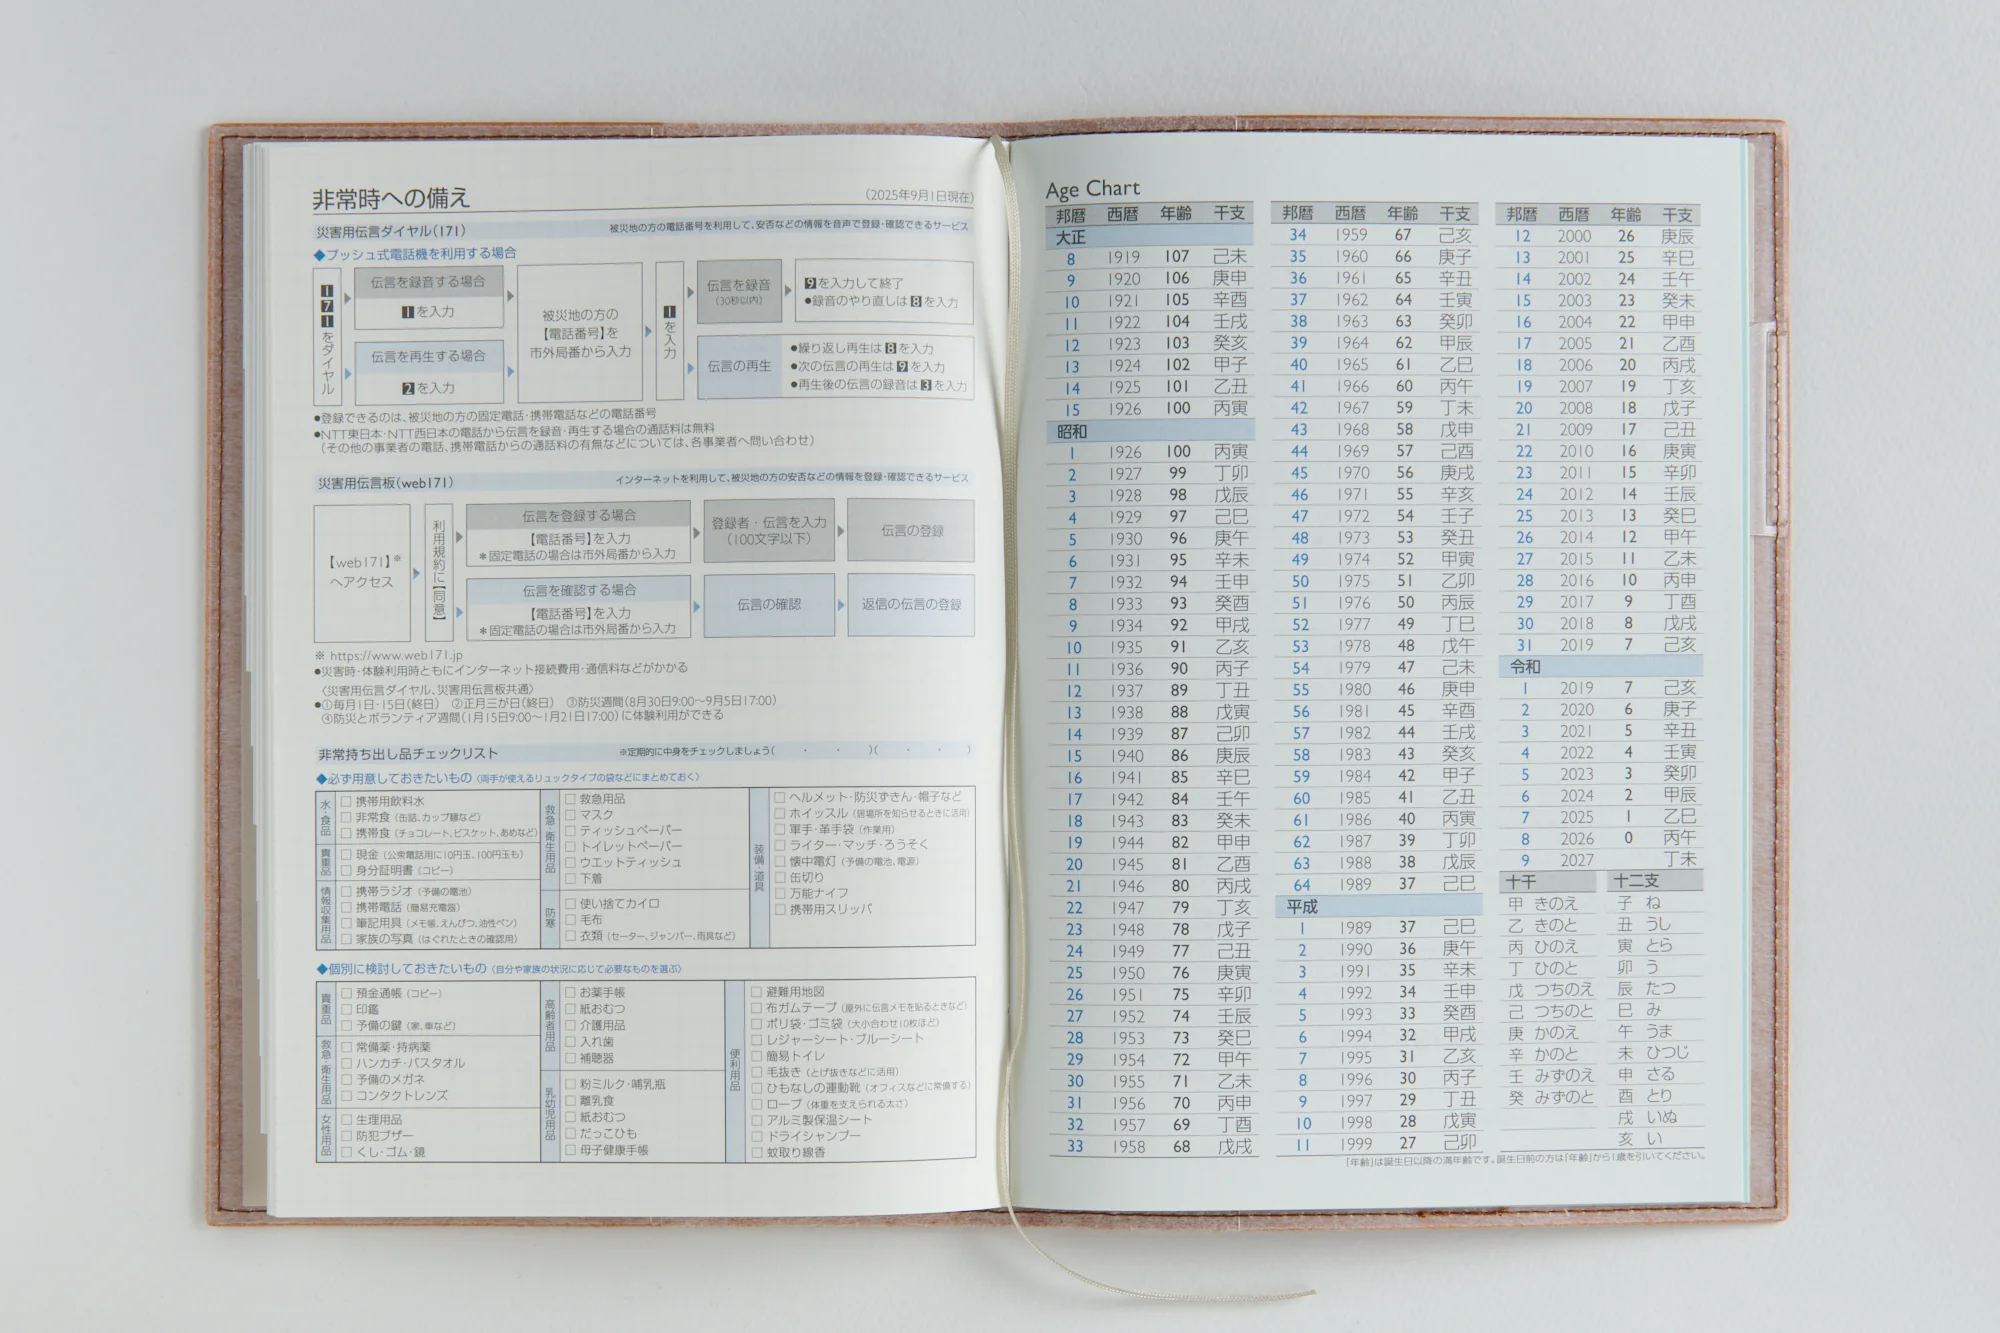 非常時への備え
（2025年9月1日現在）
災害用伝言ダイヤル（171）
被災地の方の電話番号を利用して、安否などの情報を音声で登録・確認できるサービス
◆プッシュ式電話機を利用する場合
171をダイヤル
伝言を録音する場合
1を入力
伝言を再生する場合
2を入力
被災地の方の
【電話番号】を
市外局番から入力
1を入力
伝言を録音
（30秒以内）
9を入力して終了
●録音のやり直しは8を入力
伝言の再生
●繰り返し再生は8を入力
●次の伝言の再生は9を入力
●再生後の伝言の録音は3を入力
●登録できるのは、被災地の方の固定電話・携帯電話などの電話番号
●NTT東日本・NTT西日本の電話から伝言を録音・再生する場合の通話料は無料
（その他の事業者の電話、携帯電話からの通話料の有無などについては、各事業者へ問い合わせ）
災害用伝言板（web171）
インターネットを利用して、被災地の方の安否などの情報を登録・確認できるサービス
【web171】※
へアクセス
利用規約に【同意】
伝言を登録する場合
【電話番号】を入力
＊固定電話の場合は市外局番から入力
登録者・伝言を入力
（100文字以下）
伝言の登録
伝言を確認する場合
【電話番号】を入力
＊固定電話の場合は市外局番から入力
伝言の確認
返信の伝言の登録
※ https://www.web171.jp
●災害時・体験利用時ともにインターネット接続費用・通信料などがかかる
〈災害用伝言ダイヤル、災害用伝言板共通〉
●①毎月1日・15日（終日） ②正月三が日（終日） ③防災週間（8月30日9:00～9月5日17:00）
④防災とボランティア週間（1月15日9:00～1月21日17:00）に体験利用ができる
非常持ち出し品チェックリスト
※定期的に中身をチェックしましょう（ ・ ・ ）（ ・ ・ ）
◆必ず用意しておきたいもの〈両手が使えるリュックタイプの袋などにまとめておく〉
水・食品
□ 携帯用飲料水
□ 非常食（缶詰、カップ麺など）
□ 携帯食（チョコレート、ビスケット、あめなど）
貴重品
□ 現金（公衆電話用に10円玉、100円玉も）
□ 身分証明書（コピー）
情報収集用品
□ 携帯ラジオ（予備の電池）
□ 携帯電話（簡易充電器）
□ 筆記用具（メモ帳、えんぴつ、油性ペン）
□ 家族の写真（はぐれたときの確認用）
救急・衛生用品
□ 救急用品
□ マスク
□ ティッシュペーパー
□ トイレットペーパー
□ ウエットティッシュ
□ 下着
防寒
□ 使い捨てカイロ
□ 毛布
□ 衣類（セーター、ジャンパー、雨具など）
装備・道具
□ ヘルメット・防災ずきん・帽子など
□ ホイッスル（居場所を知らせるときに活用）
□ 軍手・革手袋（作業用）
□ ライター・マッチ・ろうそく
□ 懐中電灯（予備の電池、電源）
□ 缶切り
□ 万能ナイフ
□ 携帯用スリッパ
◆個別に検討しておきたいもの〈自分や家族の状況に応じて必要なものを選ぶ〉
貴重品
□ 預金通帳（コピー）
□ 印鑑
□ 予備の鍵（家、車など）
救急・衛生用品
□ 常備薬・持病薬
□ ハンカチ・バスタオル
□ 予備のメガネ
□ コンタクトレンズ
女性用品
□ 生理用品
□ 防犯ブザー
□ くし・ゴム・鏡
高齢者用品
□ お薬手帳
□ 紙おむつ
□ 介護用品
□ 入れ歯
□ 補聴器
乳幼児用品
□ 粉ミルク・哺乳瓶
□ 離乳食
□ 紙おむつ
□ だっこひも
□ 母子健康手帳
便利用品
□ 避難用地図
□ 布ガムテープ（屋外に伝言メモを貼るときなど）
□ ポリ袋・ゴミ袋（大小合わせ10枚ほど）
□ レジャーシート・ブルーシート
□ 簡易トイレ
□ 毛抜き（とげ抜きなどに活用）
□ ひもなしの運動靴（オフィスなどに常備する）
□ ロープ（体重を支えられる太さ）
□ アルミ製保温シート
□ ドライシャンプー
□ 蚊取り線香
Age Chart
邦暦 西暦 年齢 干支
大正
8 1919 107 己未
9 1920 106 庚申
10 1921 105 辛酉
11 1922 104 壬戌
12 1923 103 癸亥
13 1924 102 甲子
14 1925 101 乙丑
15 1926 100 丙寅
昭和
1 1926 100 丙寅
2 1927 99 丁卯
3 1928 98 戊辰
4 1929 97 己巳
5 1930 96 庚午
6 1931 95 辛未
7 1932 94 壬申
8 1933 93 癸酉
9 1934 92 甲戌
10 1935 91 乙亥
11 1936 90 丙子
12 1937 89 丁丑
13 1938 88 戊寅
14 1939 87 己卯
15 1940 86 庚辰
16 1941 85 辛巳
17 1942 84 壬午
18 1943 83 癸未
19 1944 82 甲申
20 1945 81 乙酉
21 1946 80 丙戌
22 1947 79 丁亥
23 1948 78 戊子
24 1949 77 己丑
25 1950 76 庚寅
26 1951 75 辛卯
27 1952 74 壬辰
28 1953 73 癸巳
29 1954 72 甲午
30 1955 71 乙未
31 1956 70 丙申
32 1957 69 丁酉
33 1958 68 戊戌
邦暦 西暦 年齢 干支
34 1959 67 己亥
35 1960 66 庚子
36 1961 65 辛丑
37 1962 64 壬寅
38 1963 63 癸卯
39 1964 62 甲辰
40 1965 61 乙巳
41 1966 60 丙午
42 1967 59 丁未
43 1968 58 戊申
44 1969 57 己酉
45 1970 56 庚戌
46 1971 55 辛亥
47 1972 54 壬子
48 1973 53 癸丑
49 1974 52 甲寅
50 1975 51 乙卯
51 1976 50 丙辰
52 1977 49 丁巳
53 1978 48 戊午
54 1979 47 己未
55 1980 46 庚申
56 1981 45 辛酉
57 1982 44 壬戌
58 1983 43 癸亥
59 1984 42 甲子
60 1985 41 乙丑
61 1986 40 丙寅
62 1987 39 丁卯
63 1988 38 戊辰
64 1989 37 己巳
平成
1 1989 37 己巳
2 1990 36 庚午
3 1991 35 辛未
4 1992 34 壬申
5 1993 33 癸酉
6 1994 32 甲戌
7 1995 31 乙亥
8 1996 30 丙子
9 1997 29 丁丑
10 1998 28 戊寅
11 1999 27 己卯
邦暦 西暦 年齢 干支
12 2000 26 庚辰
13 2001 25 辛巳
14 2002 24 壬午
15 2003 23 癸未
16 2004 22 甲申
17 2005 21 乙酉
18 2006 20 丙戌
19 2007 19 丁亥
20 2008 18 戊子
21 2009 17 己丑
22 2010 16 庚寅
23 2011 15 辛卯
24 2012 14 壬辰
25 2013 13 癸巳
26 2014 12 甲午
27 2015 11 乙未
28 2016 10 丙申
29 2017 9 丁酉
30 2018 8 戊戌
31 2019 7 己亥
令和
1 2019 7 己亥
2 2020 6 庚子
3 2021 5 辛丑
4 2022 4 壬寅
5 2023 3 癸卯
6 2024 2 甲辰
7 2025 1 乙巳
8 2026 0 丙午
9 2027 丁未
十干
甲 きのえ
乙 きのと
丙 ひのえ
丁 ひのと
戊 つちのえ
己 つちのと
庚 かのえ
辛 かのと
壬 みずのえ
癸 みずのと
十二支
子 ね
丑 うし
寅 とら
卯 う
辰 たつ
巳 み
午 うま
未 ひつじ
申 さる
酉 とり
戌 いぬ
亥 い
「年齢」は誕生日以降の満年齢です。誕生日前の方は「年齢」から1歳を引いてください。